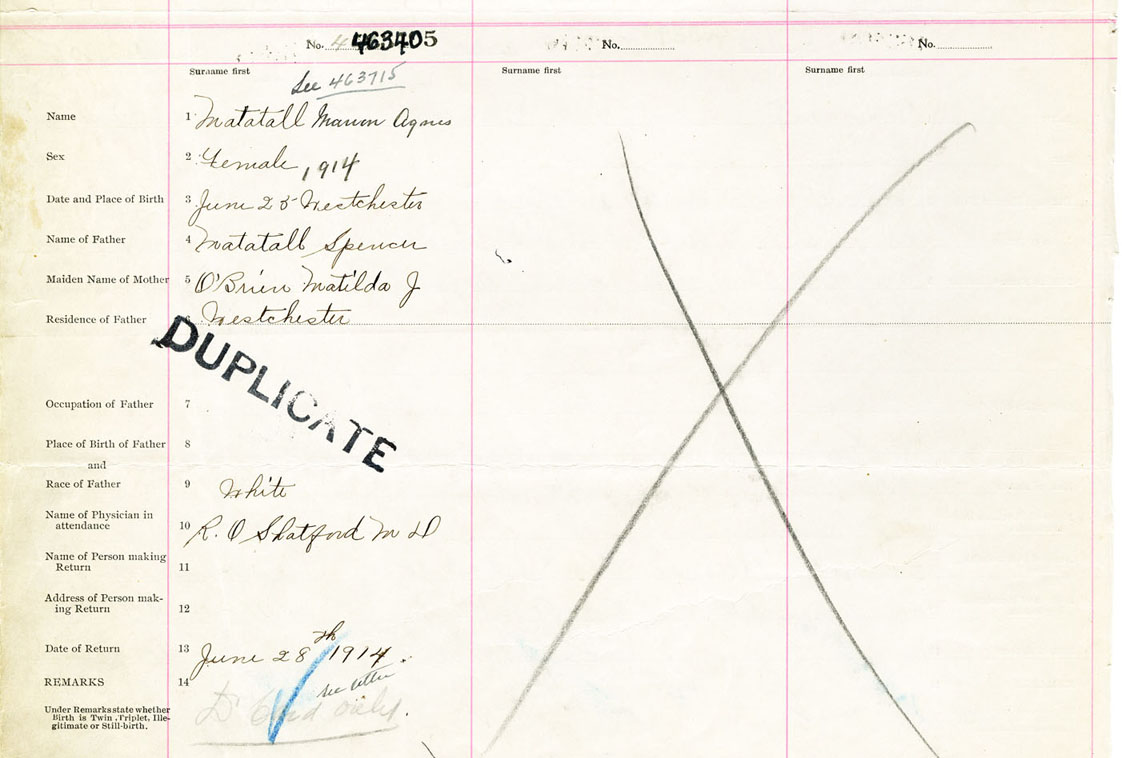 No. 463405 No. No.
Surname first Surname first Surname first
See 463715
Name 1 Matatall Marion Agnes
Sex 2 Female 1914
Date and Place of Birth 3 June 25 Westchester
Name of Father 4 Matatall Spencer
Maiden Name of Mother 5 O'Brien Matilda J
Residence of Father 6 Westchester
DUPLICATE
Occupation of Father 7
Place of Birth of Father 8
and
Race of Father 9 White
Name of Physician in
attendance 10 R. O Shatford M D
Name of Person making
Return 11
Address of Person mak-
ing Return 12
Date of Return 13 June 28th 1914.
REMARKS 14
see
only.
Under Remarks state whether
Birth is Twin, Triplet, Ille-
gitimate or Still-birth.